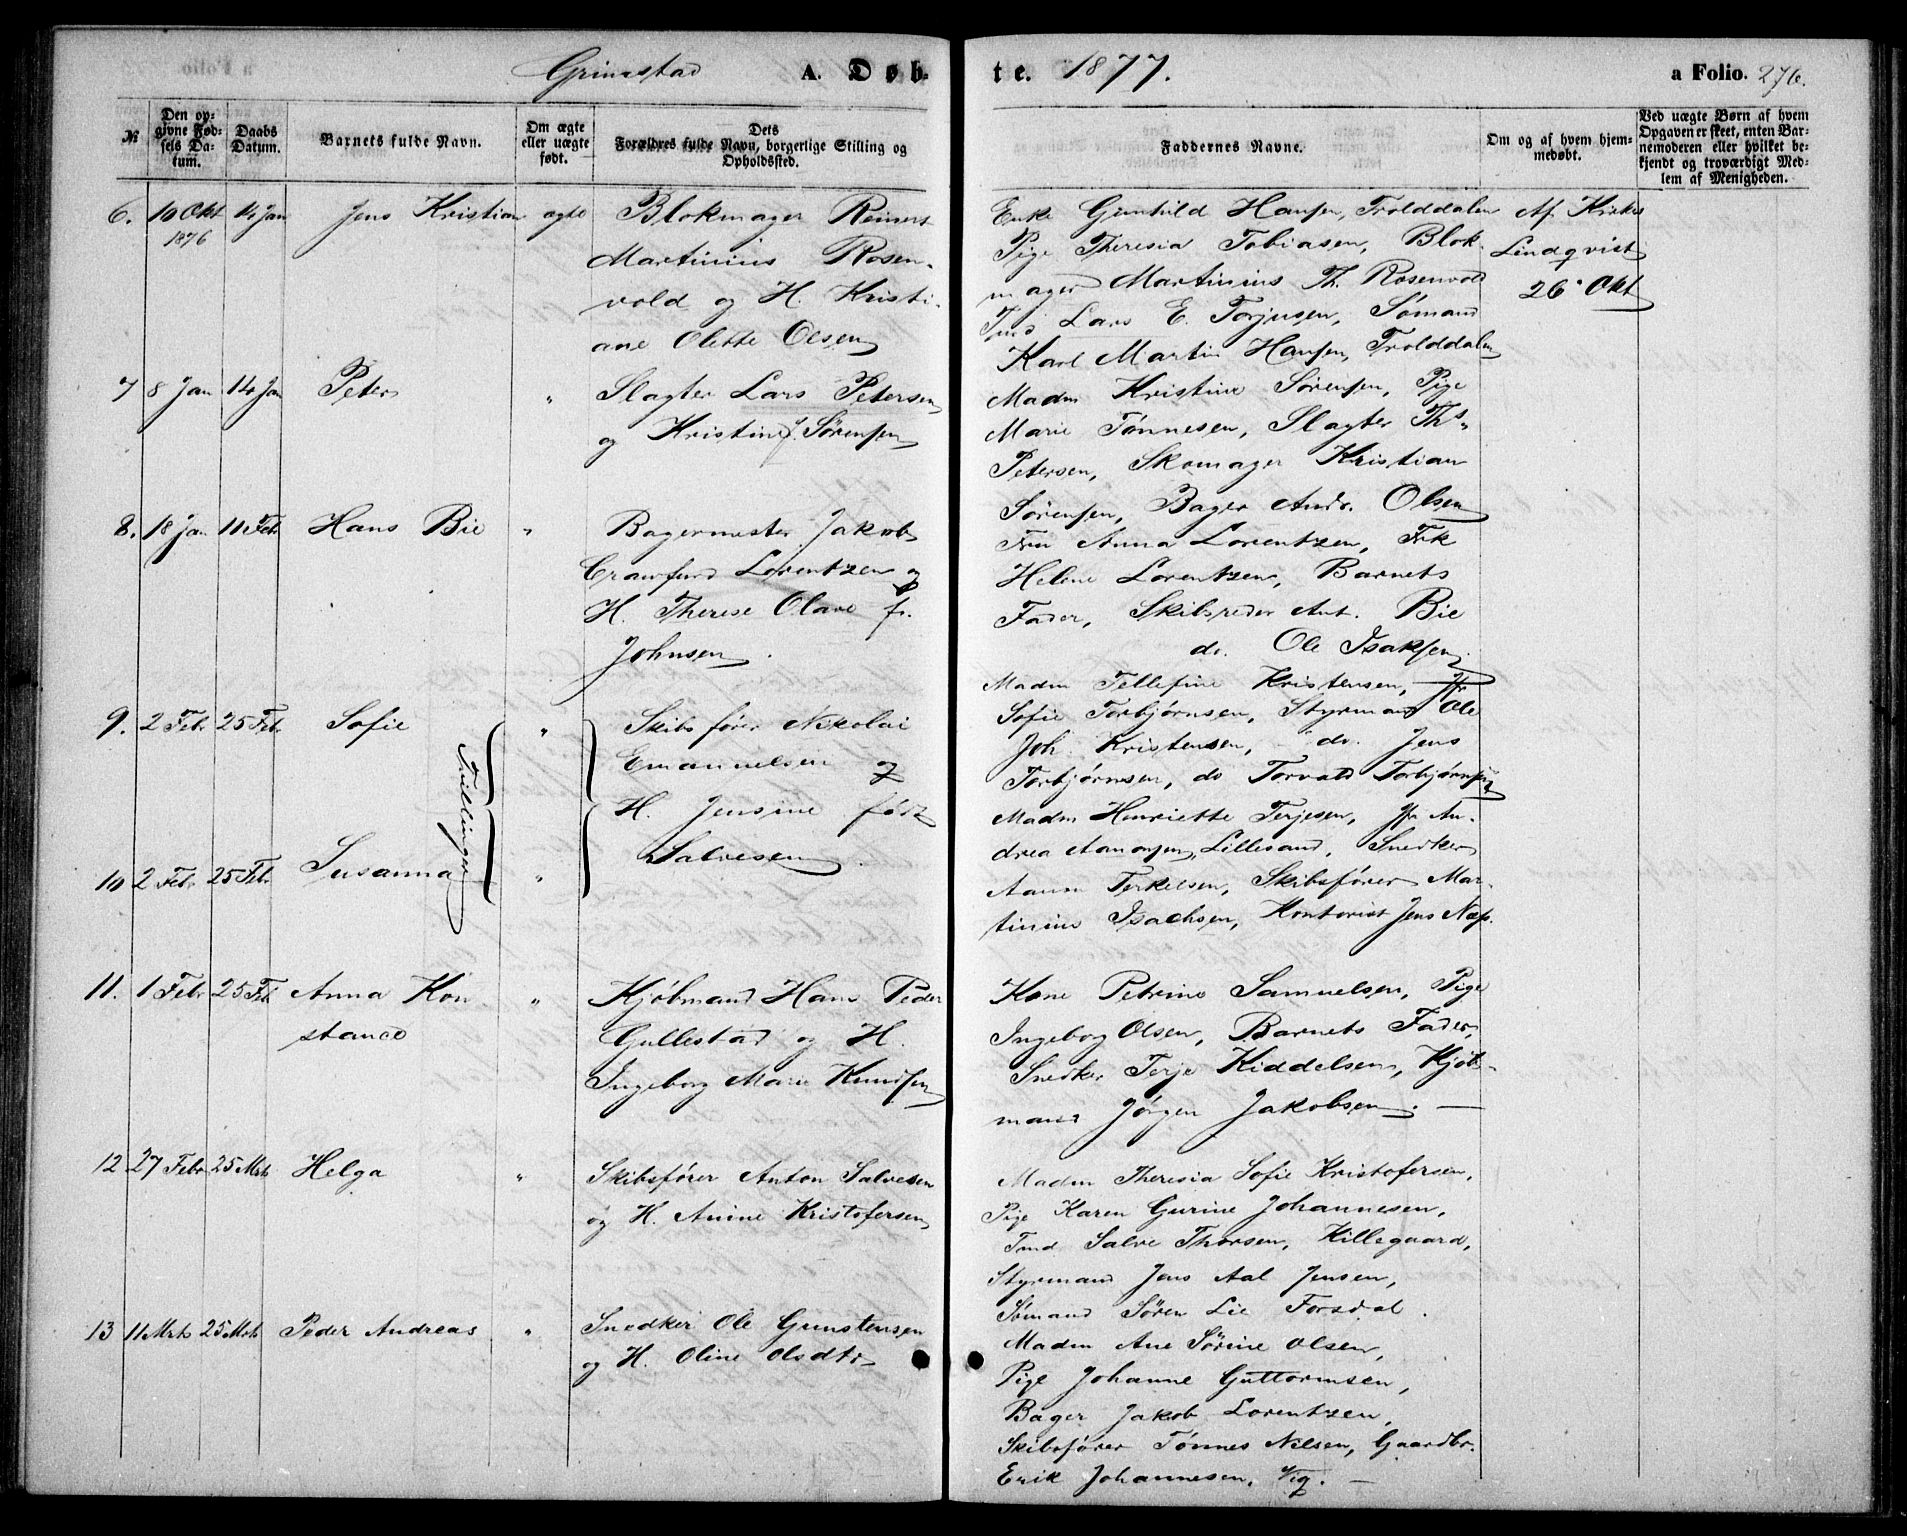 Grimstad A. Døb-
te. 1877. a Folio. 276.
№
Den op-
givne Fød-
sels Da-
tum.
Daabs
Datum.
Barnets fulde Navn.
Om ægte
eller uægte
født.
Dets
Forældres fulde Navn, borgerlige Stilling og
Opholdssted.
Faddernes Navne.
Om og af hvem hjem-
medøbt.
Ved uægte Børn af hvem
Opgaven er skeet, enten Bar-
nemoderen eller hvilket be-
kjendt og troværdigt Med-
lem af Menigheden.
6. 10 Okt 14 Jan Jens Kristian ægte Blokmager Reinert
1876
Martinius Rosen-
vold og H. Kristi-
ane Olette Olsen
Enke Gunhild Hansen, Trolddalen
Pige Theresia Tobiasen, Blok-
mager Martinius Th. Rosenvold
Tmd Lars E. Torjusen, Sømand
Karl Martin Hansen, Trolddalen
Af Kirkes
Lindqvist
26 Okt
7 8 Jan 14 Jan Peter " Slagter Lars Petersen
og Kristine f. Sørensen
Madm Kristine Sørensen, Pige
Marie Tønnesen, Slagter Ths
Petersen, Skomager Kristian
Sørensen, Bager Andr. Olsen
8. 18 Jan 11 Feb Hans Bie " Bagermester Jakob
Crawfurd Lorentzen og
H. Therese Olave f.
Johnsen.
Fru Anna Lorentzen, Frk
Helene Lorentzen, Barnets
Fader, Skibsreder Ant. Bie
do. Ole Isaksen
9. 2 Febr 25 Febr Sofie " Skibsfører Nikolai
Emanuelsen og
H. Jensine født
Salvesen.
Tvillinger
Madm Tellefine Kristensen, Jfr
Sofie Torbjørnsen, Styrmand Ole
Joh. Kristensen, do. Jens
Torbjørnsen, do Torvald Torbjørnsen
10 2 Febr 25 Febr Susanna "
Madm Henriette Terjesen, Jfr An-
drea Aanonsen, Lillesand, Snedker
Aanon Terkelsen, Skibsfører Mar-
tinius Isachsen, Kontorist Jens Næs.
11. 1 Febr 25 Feb Anna Kon- " Kjøbmand Hans Peder
stance
Gullestad og H.
Ingeborg Marie Knudsen
Kone Petrine Samuelsen, Pige
Ingeborg Olsen, Barnets Fader,
Snedker Terje Kiddelsen, Kjøb-
mand Jørgen Jakobsen. —
12 27 Febr 25 Mrts Helga " Skibsfører Anton Salvesen
og H. Anine Kristofersen
Madm Theresia Sofie Kristofersen,
Pige Karen Gurine Johannesen,
Tmd Salve Thorsen, Killegaard,
Styrmand Jens Aal Jensen,
Sømand Søren Lie Forsdal.
13 11 Mrts 25 Mrts Peder Andreas " Snedker Ole Gunstensen
og H. Oline Olsdtr
Madm Ane Sørine Olsen,
Pige Johanne Guttormsen,
Bager Jakob Lorentzen,
Skibsfører Tønnes Nilsen, Gaardbr.
Erik Johannesen, Vig. —